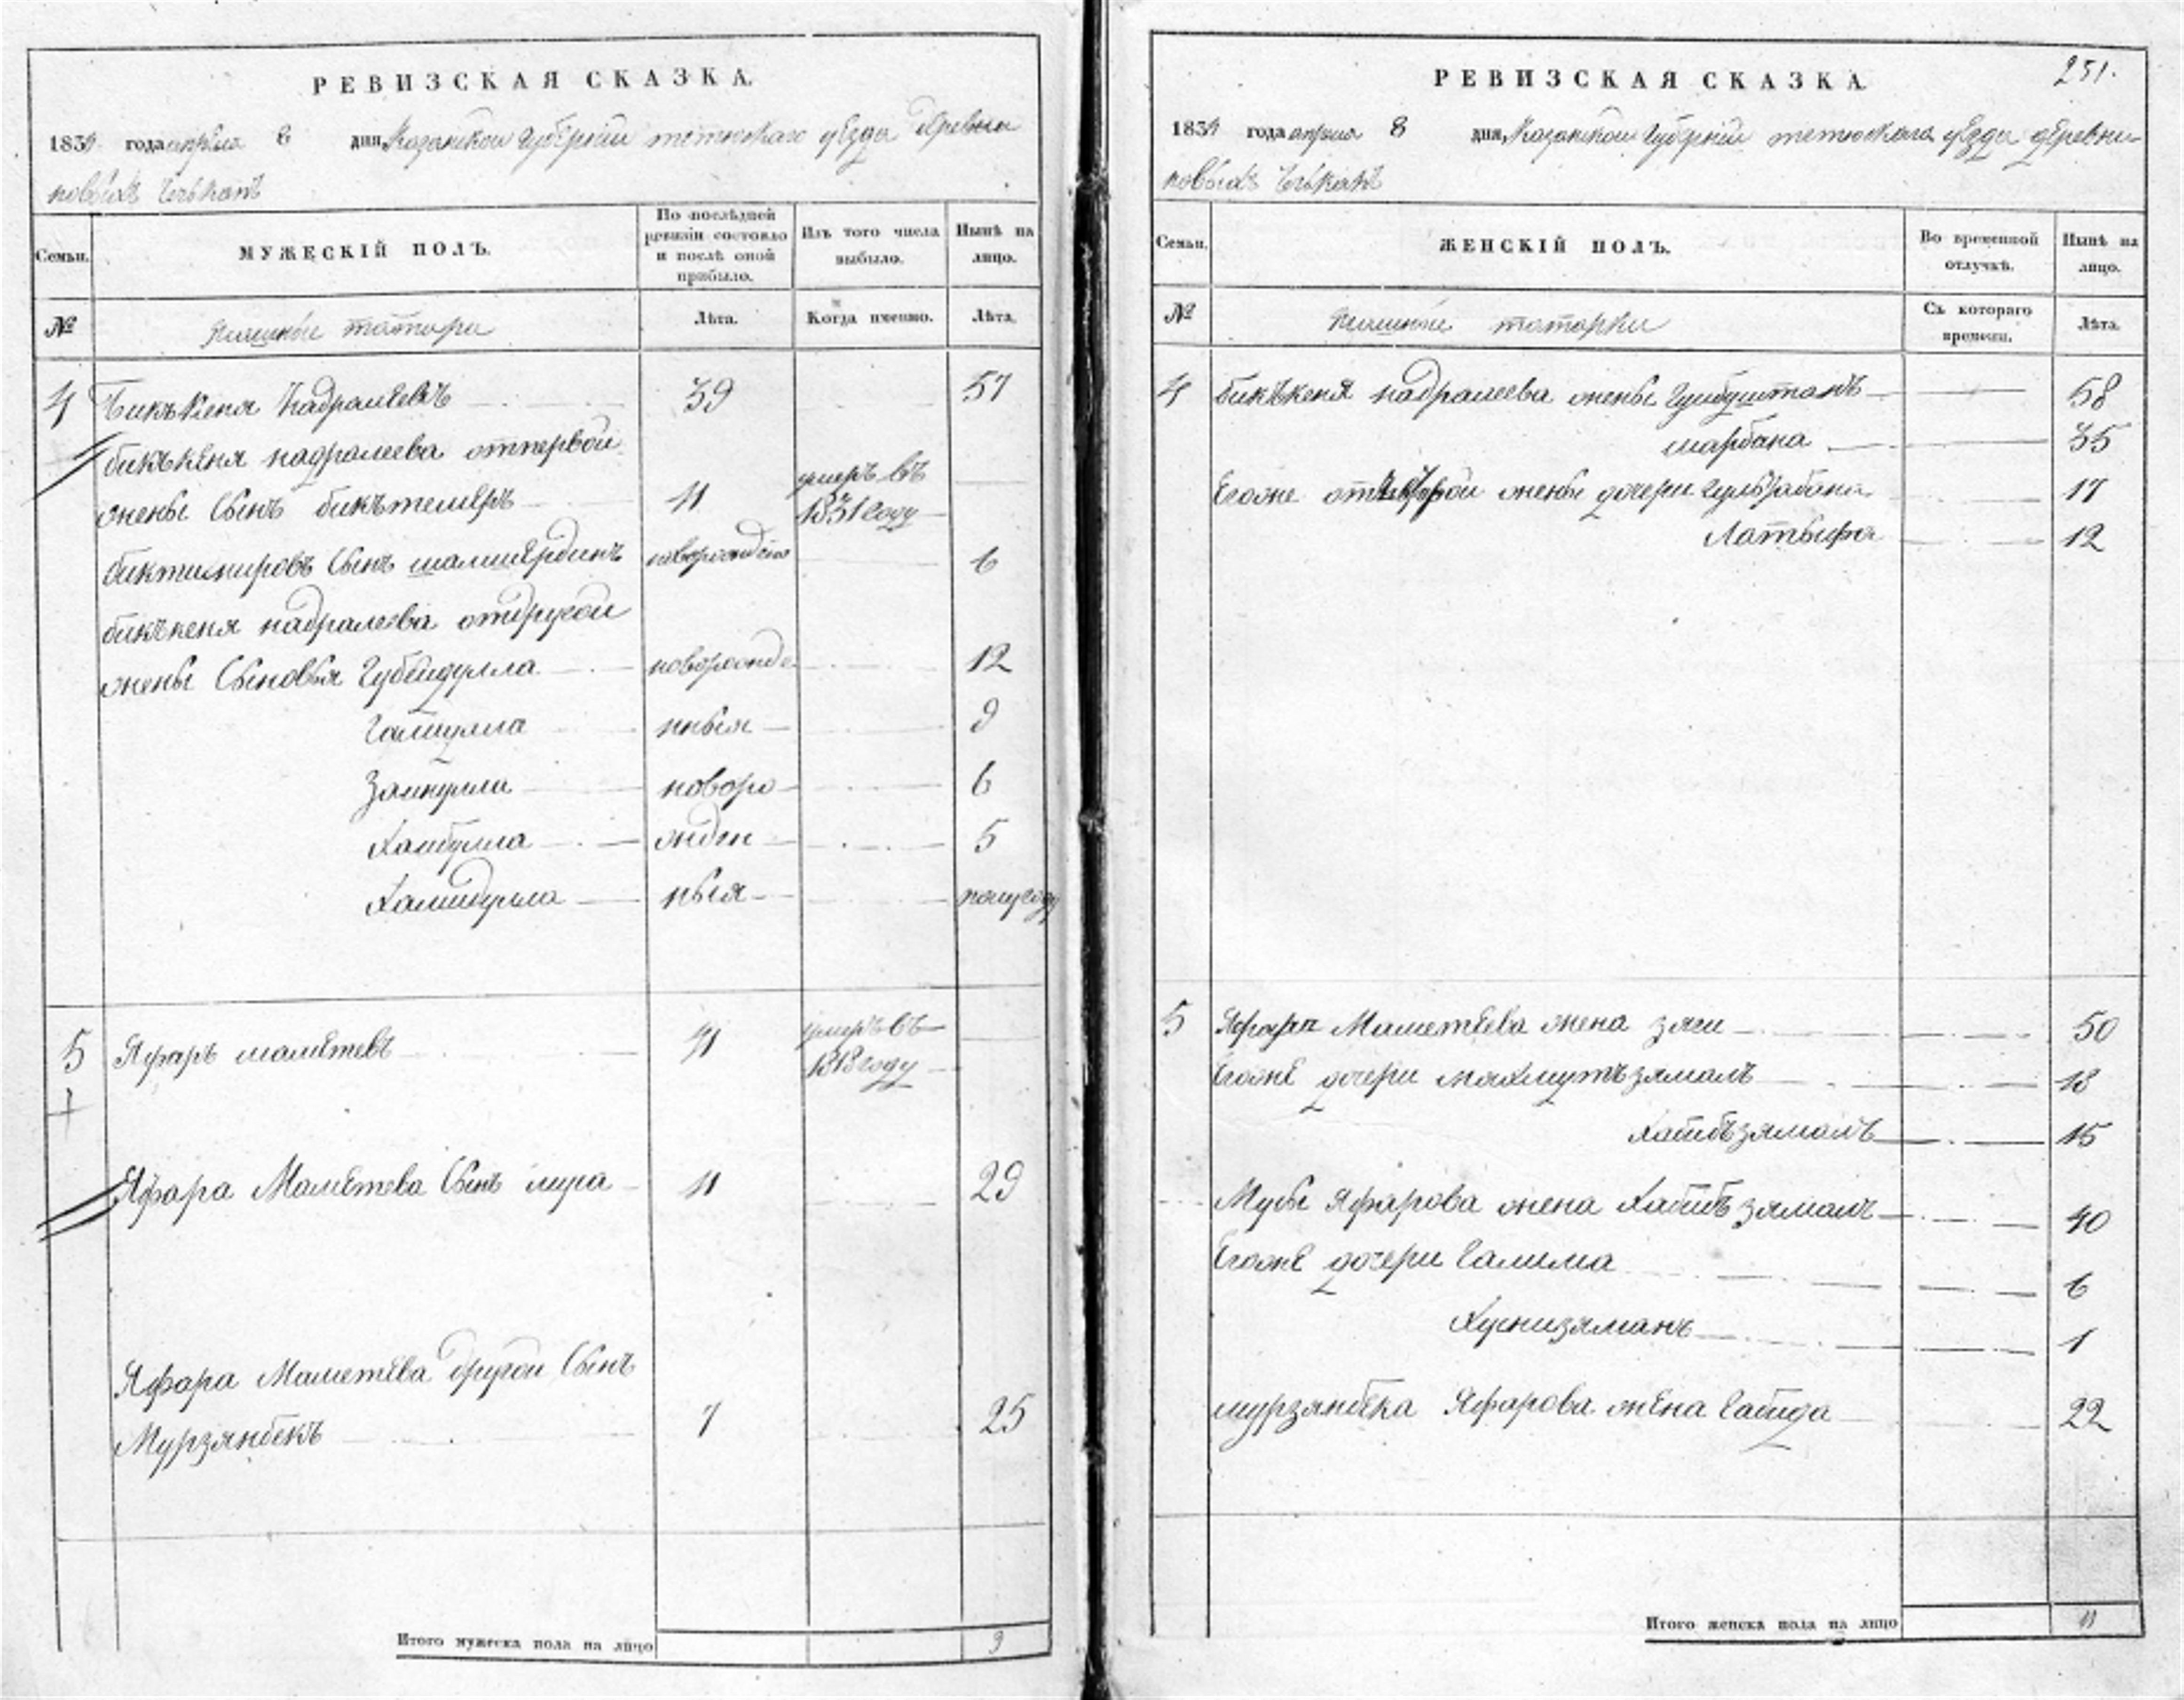 РЕВИЗСКАЯ СКАЗКА.
1834 года апреля 8 дня, Казанской губернии тетюскаго уезда деревни
новыхъ
Семьи.
МУЖЕСКІЙ ПОЛЪ.
По послѣдней ревизіи состояло и послѣ оной прибыло.
Изъ того числа выбыло.
Нынѣ на лицо.
№
татара
Лѣта.
Когда именно.
Лѣта.
4 Бикъкеня Надралеевъ 39 57
бикъкеня надралеева отпервой
жены Сынъ бикътемеръ 11 умеръ въ 1831 году
биктимировъ Сынъ шамшердинъ 6
бикъкеня надралеева отдругой
жены Сыновья Губейдулла новорожде 12
нныя 9
Зайнулла новоро 6
Хайбулла жден 5
Хамидулла ныя полугоду
5 Яфаръ маметевъ 41 умеръ въ 1818 году
Яфара Маметева Сынъ муса 11 29
Яфара Маметева другой Сынъ
Мурзянбекъ 7 25
Итого мужеска пола на лицо 9
251.
РЕВИЗСКАЯ СКАЗКА
1834 года апреля 8 дня, Казанской губернии тетюскага уезда деревни
новыхъ
Семьи.
ЖЕНСКІЙ ПОЛЪ.
Во временной отлучкѣ.
Нынѣ на лицо.
№
татарки
Съ котораго времени.
Лѣта.
4 бикъкеня надралеева жены Гулбуштанъ 58
шарбана 35
Егоже жены дочери 17
Латыфа 12
5 Маметева жена зяги 50
Егоже дочери махмутъзямалъ 18
Хабибъзямалъ 15
Мусы Яфарова жена Хабибъзямалъ 40
Егоже дочери Галима 6
Хуснизяманъ 1
мурзянбека Яфарова жена Сабида 22
Итого женска пола на лицо 11